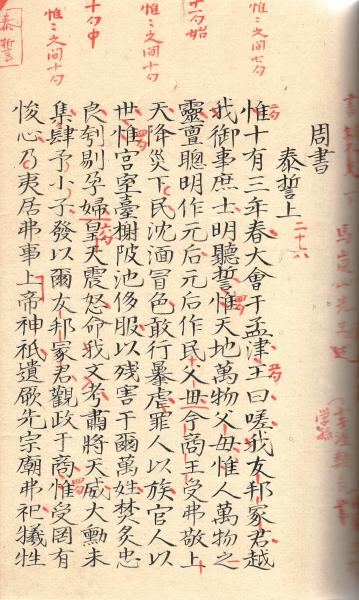 周書
泰誓上 二十六
惟十有三年春大會于孟津王曰嗟我友邦冢君越
我御事庶士明聽誓惟天地萬物父母惟人萬物之
靈亶聰明作元后元后作民父母今商王受弗敬上
天降災下民沈湎冒色敢行暴虐罪人以族官人以
世惟宮室臺榭陂池侈服以残害于爾萬姓焚炙忠
良刳剔孕婦皇天震怒命我文考肅將天威大勳未
集肆予小子發以爾友邦冢君觀政于商惟受罔有
悛心乃夷居弗事上帝神祇遺厥先宗廟弗祀犧牲
惟〻之间七句
十一句始
惟〻之间十句
十句中
惟〻之间十句
泰誓